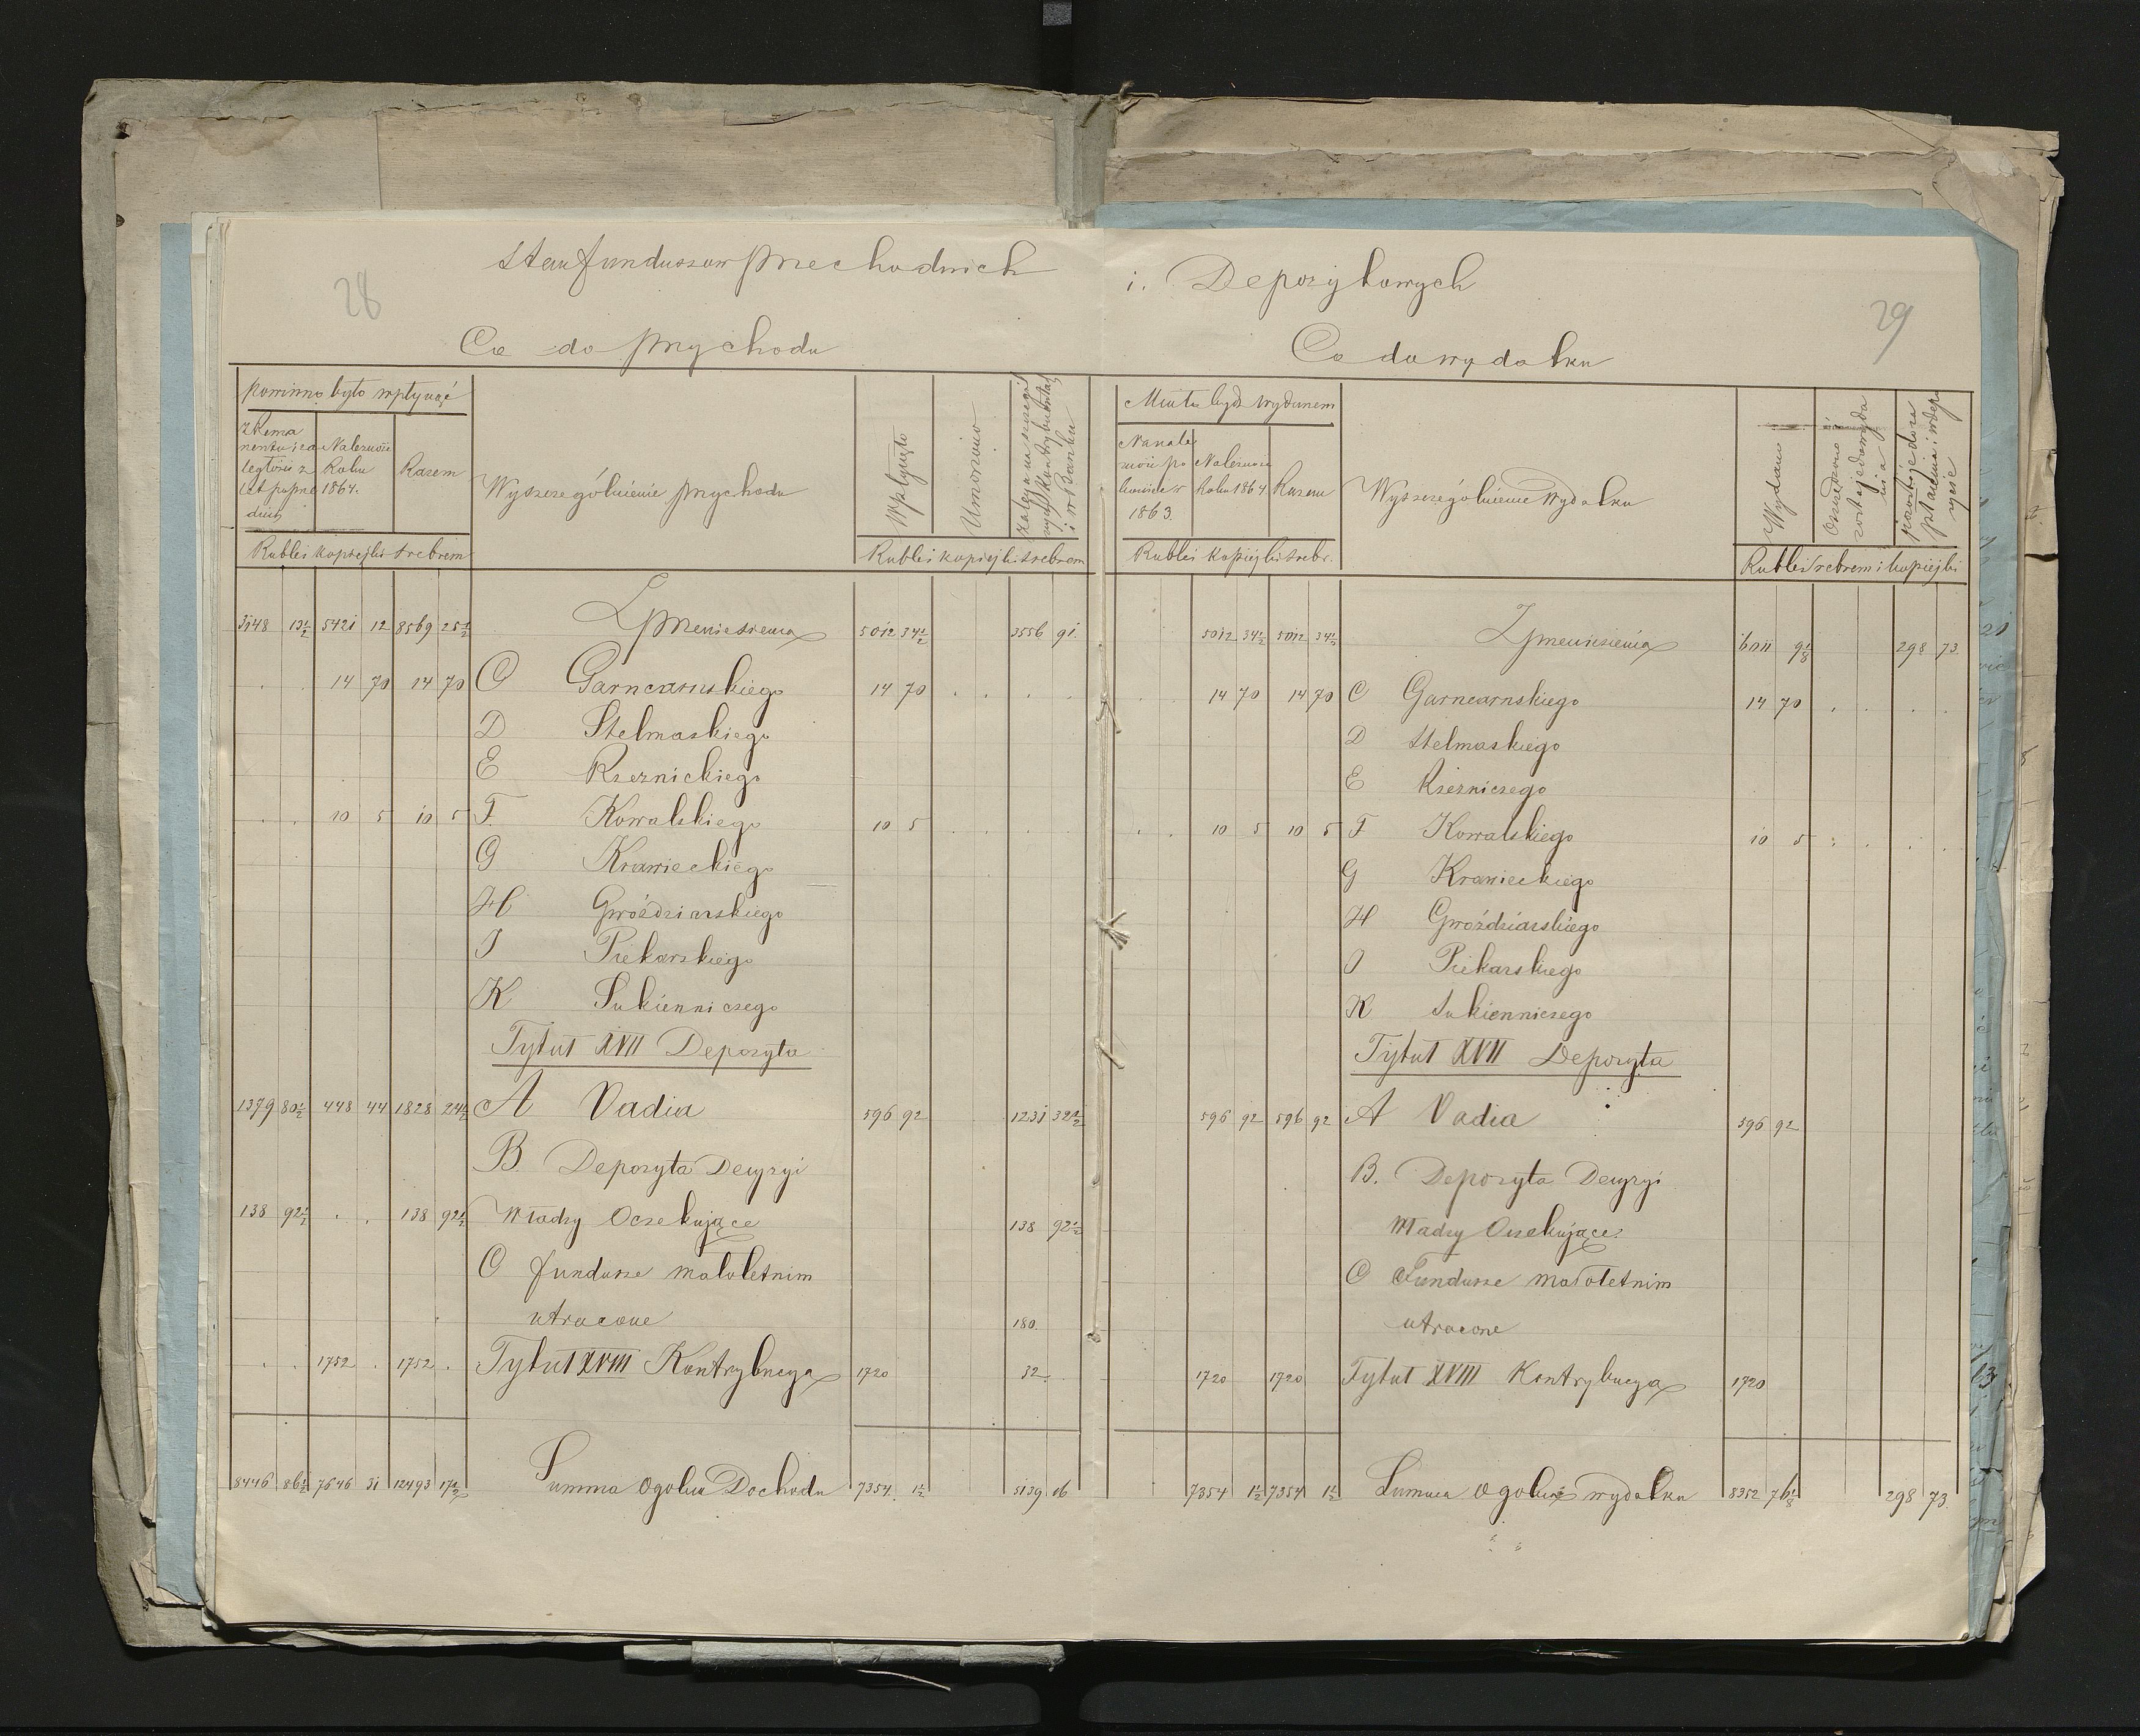 Stan funduszow przechodnich i. Depozytowych
28
29
Co do przychodu
powinno było wpłynąć
z Rema
nentu i za
ległości z
lat poprze
dnich
Należność
Roku
1864.
Razem
Wyszczególnienie przychodu
Wpłynęło
Umorzono
i w Banku
Rubli i kopiejki srebrem
Rubli i kopiejki srebrem
3148 13½ 5421 12 8569 25½ Z przeniesienia 5012 34½ 3556 91.
. . 14 70 14 70 C Garncarskiego 14 70 . . . .
D Stelmaskiego
E Rzeznickiego
. . 10 5 10 5 F. Kowalskiego 10 5 . . . .
G Krawieckiego
H Gwoździarskiego
I Piekarskiego
K Sukienniczego
Tytuł XVII Depozyta
1379 80½ 448 44 1828 24½ A Vadia 596 92 1231 32½
B. Depozyta Decyzyi
138 92½ . . 138 92½ Władzy Oczekujące 138 92½
C fundusze małoletnim
utracone 180.
. . 1752 . 1752 . Tytuł XVIII Kontrybucya 1720 32.
8446 86½ 7646 31 12493 17½ Summa Ogolna Dochodu 7354 1½ 5139 16
Co do wydatku
Miało bydź wydanem
Należność
Roku 1864
Razem
1863.
Wyszczególnienie Wydatku
Wydano
Rubli i kopiejki srebr.
Rubli srebrem i kopiejki
5012 34½ 5012 34½ Z przeniesienia 6011 9⅛ 298 73.
. . 14 70 14 70 C Garncarnskiego 14 70 . . . .
D Stelmaskiego
E Rzezniczego
. . 10 5 10 5 F Kowalskiego 10 5 . . . .
G Krawieckiego
H Gwoździarskiego
I Piekarskiego
K Sukienniczego
Tytuł XVII Depozyta
596 92 596 92 A Vadia 596 92
B. Depozyta Decyzyi
Władzy Oczekujące
C Fundusze małoletnim
utracone
1720 1720 Tytuł XVIII Kontrybucya 1720
7354 1½ 7354 1½ Summa Ogolna wydatku 8352 76⅛ 298 73.